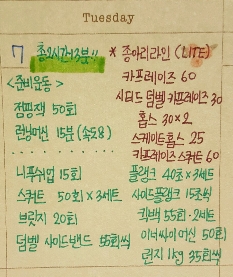 Tuesday
7 총2시간13분!!
<준비운동>
점핑잭 50회
런닝머신 15분 (속도8)
니푸쉬업 15회
스쿼트 50회×3세트
브릿지 20회
덤벨 사이드밴드 55회씩
* 종아리라인 (LITE)
카프레이즈 60
시티드 덤벨 카프레이즈 30
홉스 30×2
스케이트홉스 25
카프레이즈 스쿼트 60
플랭크 40초×3세트
사이드플랭크 15초씩
킥백 55회·2세트
이너싸이 머신 50회
런지 1kg 35회씩